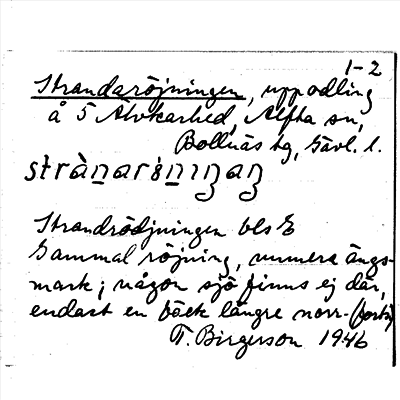 1-2
Strandaröjningen, uppodling
å 5 Älvkarhed, Alfta sn,
Bollnäs tg, Gävl. l.
stràn̲arö̀n̲ıŋaŋ
Strandrödjningen bls E
Gammal röjning, numera ängs-
mark; någon sjö finns ej där,
endast en bäck längre norr- (forts)
T. Birgerson 1946